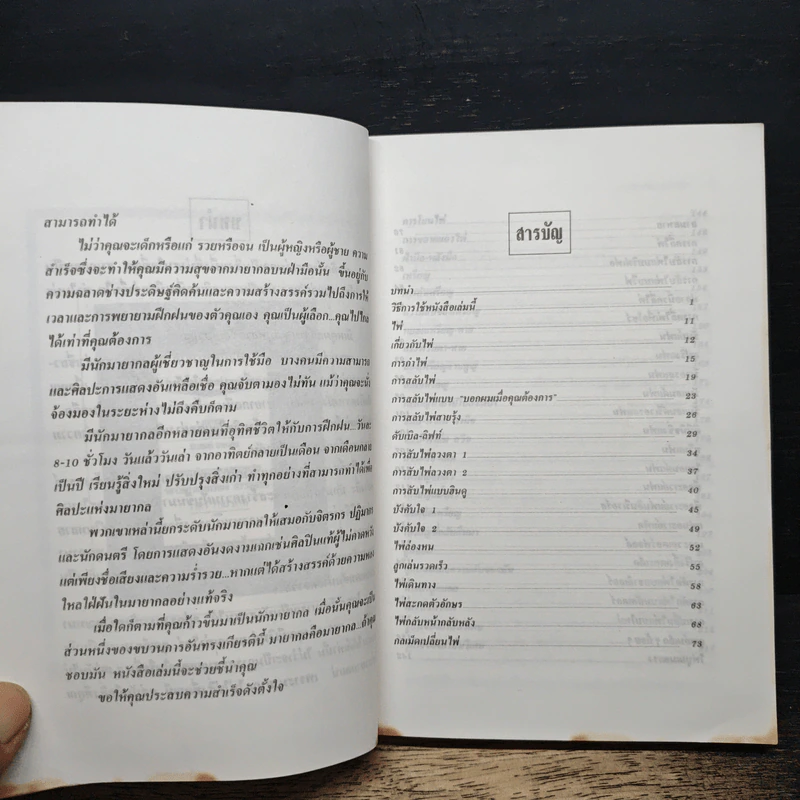 สามารถทำได้
ไม่ว่าคุณจะเด็กหรือแก่ รวยหรือจน เป็นผู้หญิงหรือผู้ชาย ความ
สำเร็จซึ่งจะทำให้คุณมีความสุขจากมายากลบนฝ่ามือนั้น ขึ้นอยู่กับ
ความฉลาดช่างประดิษฐ์คิดค้นและความสร้างสรรค์รวมไปถึงการให้
เวลาและการพยายามฝึกฝนของตัวคุณเอง คุณเป็นผู้เลือก...คุณไปไกล
ได้เท่าที่คุณต้องการ
มีนักมายากลผู้เชี่ยวชาญในการใช้มือ บางคนมีความสามารถ
และศิลปะการแสดงอันเหลือเชื่อ คุณจับตามองไม่ทัน แม้ว่าคุณจะนั่ง
จ้องมองในระยะห่างไม่ถึงคืบก็ตาม
มีนักมายากลอีกหลายคนที่อุทิศชีวิตให้กับการฝึกฝน...วันละ
8-10 ชั่วโมง วันแล้ววันเล่า จากอาทิตย์กลายเป็นเดือน จากเดือนกลาย
เป็นปี เรียนรู้สิ่งใหม่ ปรับปรุงสิ่งเก่า ทำทุกอย่างที่สามารถทำได้เพื่อ
ศิลปะแห่งมายากล
พวกเขาเหล่านี้ยกระดับนักมายากลให้เสมอกับจิตรกร ปฏิมากร
และนักดนตรี โดยการแสดงอันงดงามแถกเช่นศิลปินแท้ผู้ไม่คาดหวัง
แต่เพียงชื่อเสียงและความร่ำรวย...หากแต่ได้สร้างสรรค์ด้วยความหลง
ใหลใฝ่ฝันในมายากลอย่างแท้จริง
เมื่อใดก็ตามที่คุณก้าวขึ้นมาเป็นนักมายากล เมื่อนั้นคุณจะเป็น
ส่วนหนึ่งของขบวนการอันทรงเกียรตินี้ มายากลคือมายากล...ถ้าคุณ
ชอบมัน หนังสือเล่มนี้จะช่วยชี้นำคุณ
ขอให้คุณประสบความสำเร็จดังตั้งใจ
สารบัญ
บทนำ
วิธีการใช้หนังสือเล่มนี้ 1
ไพ่ 11
เกี่ยวกับไพ่ 12
การกำไพ่ 15
การสลับไพ่ 19
การสลับไพ่แบบ "บอกผมเมื่อคุณต้องการ" 23
การสลับไพ่สายรุ้ง 26
ดับเบิล-ลิฟท์ 29
การสับไพ่ลวงตา 1 34
การสับไพ่ลวงตา 2 37
การสับไพ่แบบฮินดู 40
บังคับใจ 1 45
บังคับใจ 2 49
ไพ่ล่องหน 52
ลูกเล่นรวดเร็ว 55
ไพ่เดินทาง 58
ไพ่สะกดตัวอักษร 63
ไพ่กลับหน้ากลับหลัง 68
กลเม็ดเปลี่ยนไพ่ 73